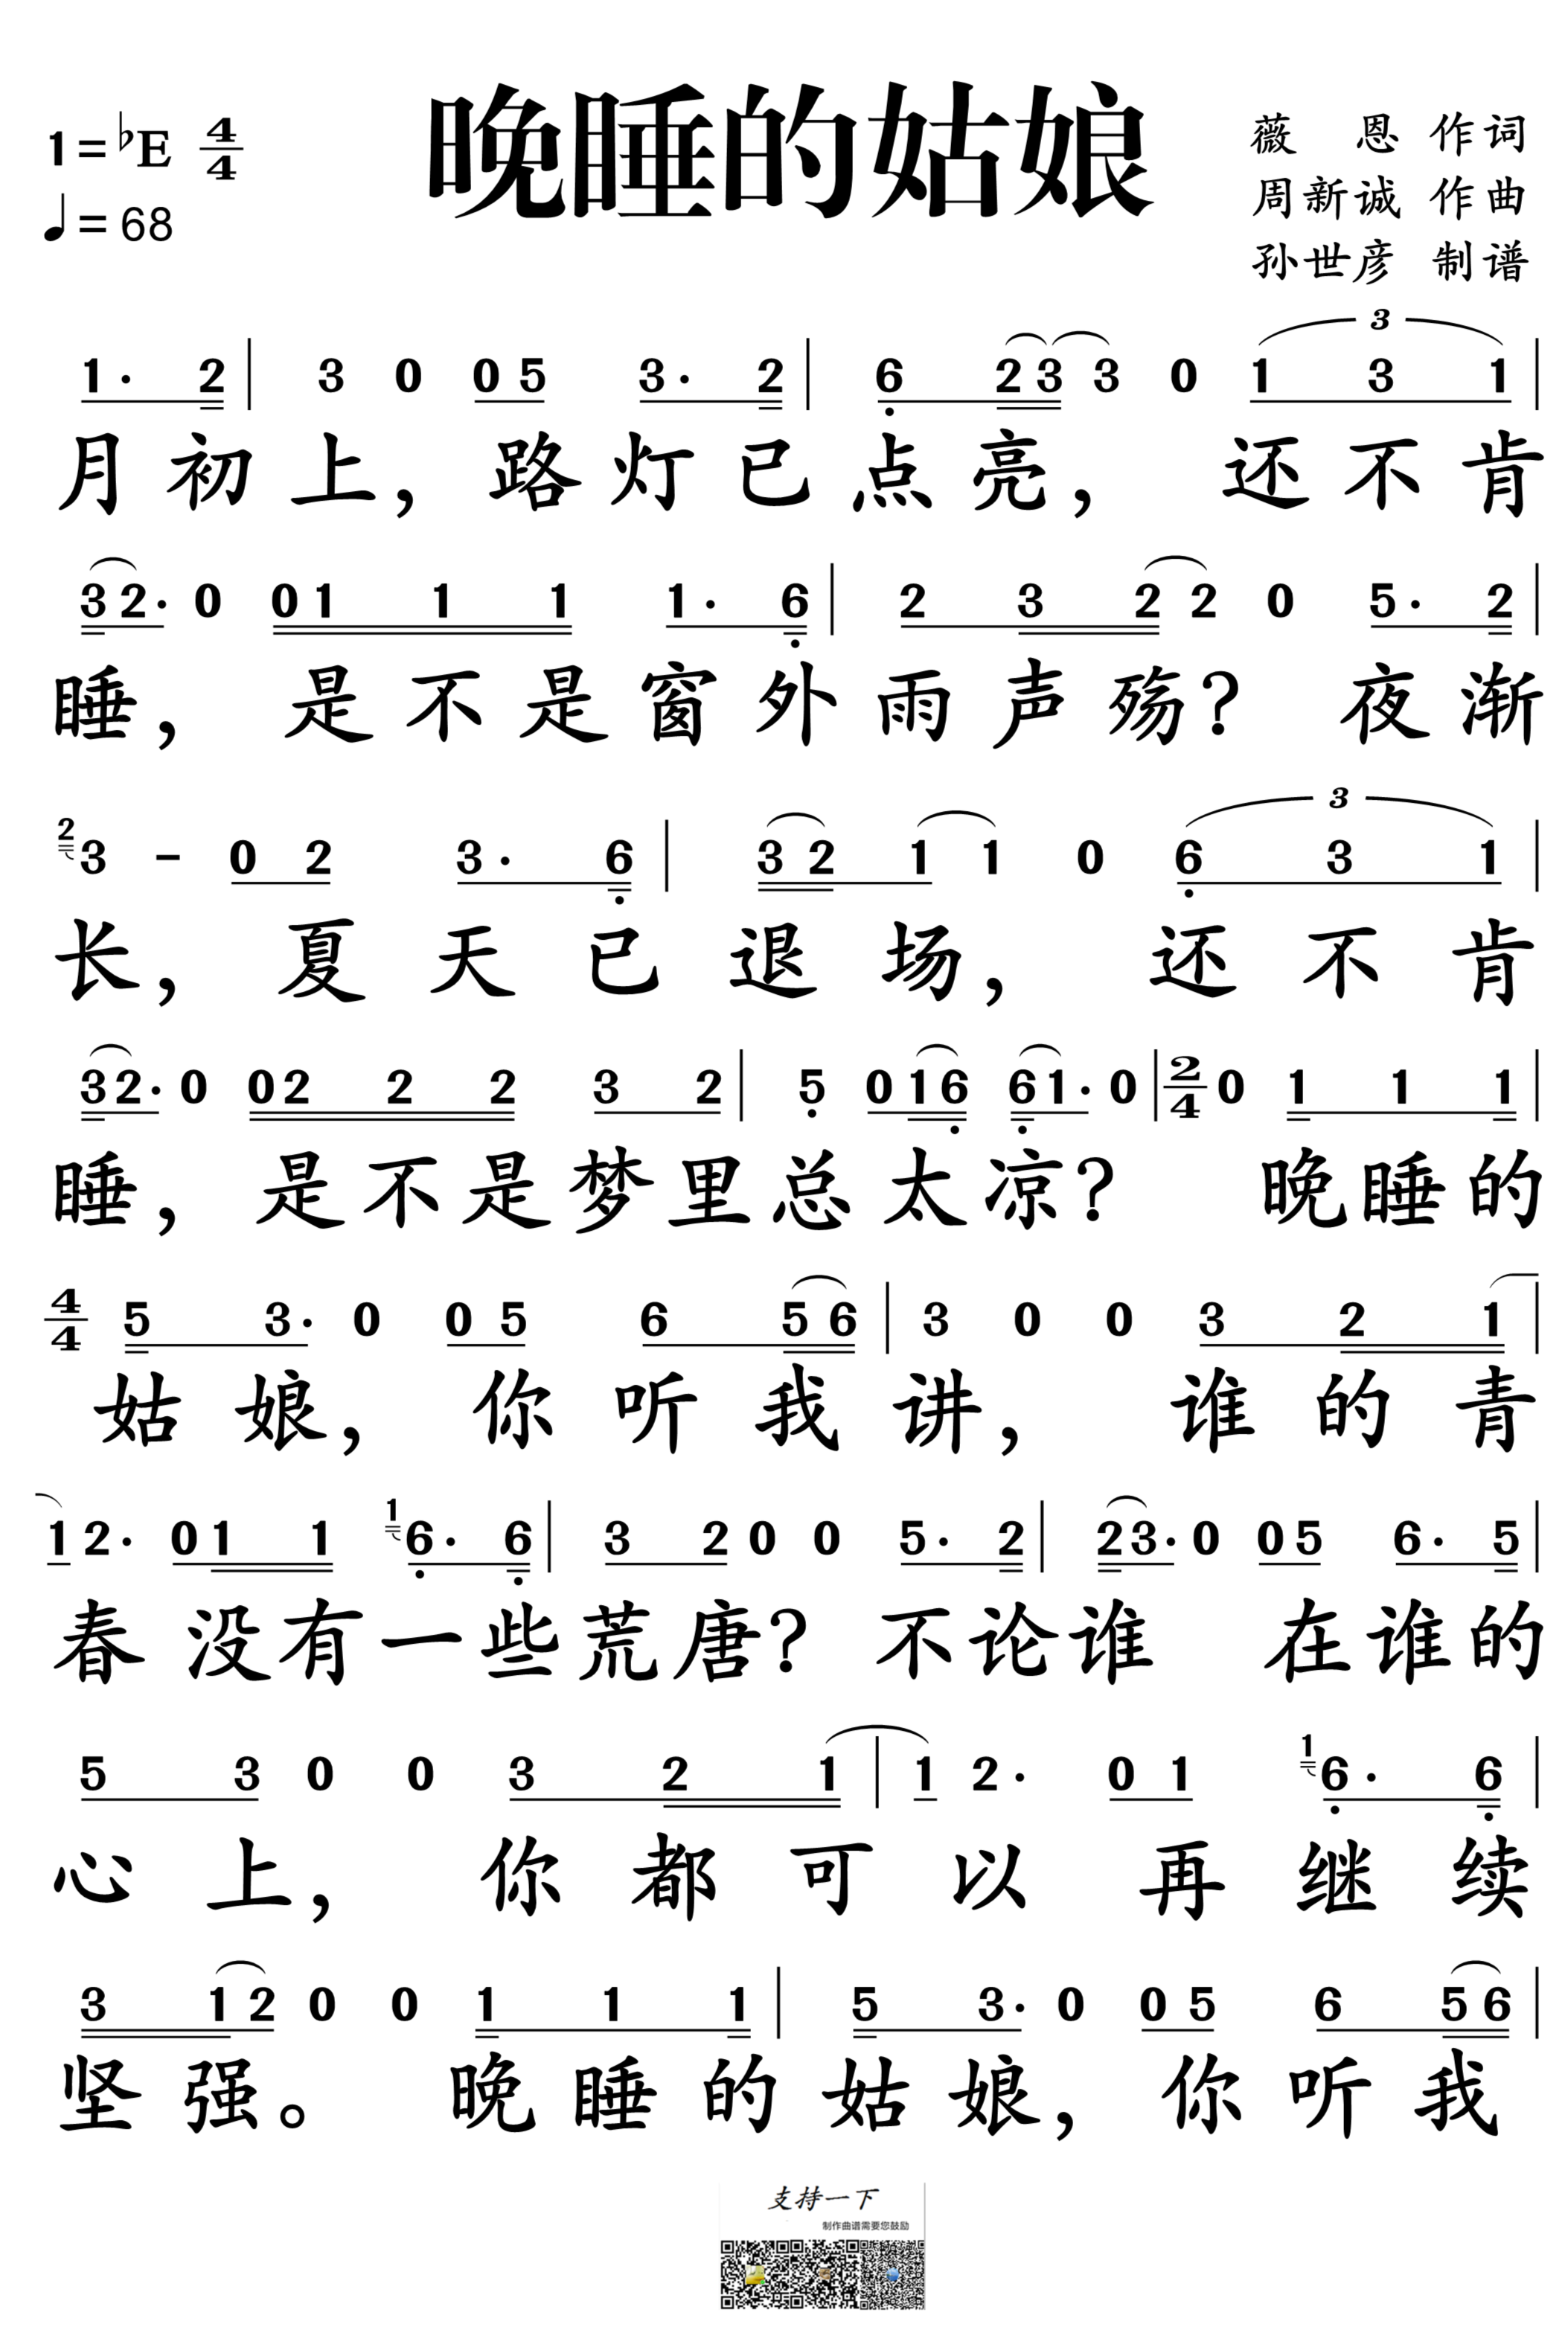 晚睡的姑娘
1=♭E 4/4
♩=68
薇 恩 作词
周新诚 作曲
孙世彦 制谱
3
1· 2 | 3 0 0 5 3· 2 | 6 2 3 3 0 1 3 1 |
月初上，路灯已点亮，还不肯
3 2· 0 0 1 1 1 1· 6 | 2 3 2 2 0 5· 2 |
睡，是不是窗外雨声殇？夜渐
3
2 3 - 0 2 3· 6 | 3 2 1 1 0 6 3 1 |
长，夏天已退场，还不肯
3 2· 0 0 2 2 2 3 2 | 5 0 1 6 6 1· 0 | 2/4 0 1 1 1 |
睡，是不是梦里总太凉？晚睡的
4/4 5 3· 0 0 5 6 5 6 | 3 0 0 3 2 1 |
姑娘，你听我讲，谁的青
1 2· 0 1 1 1 6· 6 | 3 2 0 0 5· 2 | 2 3· 0 0 5 6· 5 |
春没有一些荒唐？不论谁 在谁的
5 3 0 0 3 2 1 | 1 2· 0 1 1 6· 6 |
心上，你都可以再继续
3 1 2 0 0 1 1 1 | 5 3· 0 0 5 6 5 6 |
坚强。晚睡的姑娘，你听我
支持一下
制作曲谱需要您鼓励